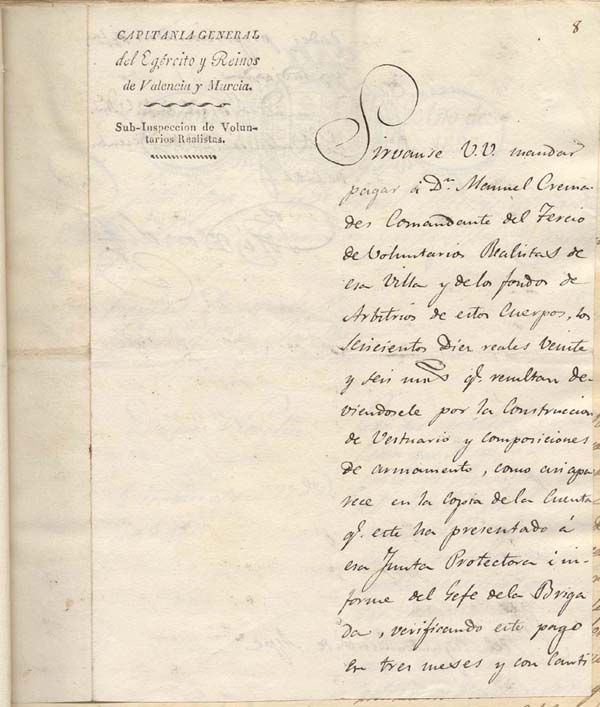 8
CAPITANIA GENERAL
del Egército y Reinos
de Valencia y Murcia.
Sub-Inspeccion de Volun-
tarios Realistas.
Sirvanse V.V. mandar
pagar á Dn. Manuel Crema-
des Comandante del Tercio
de Voluntarios Realistas de
esa Villa y de los fondos de
Arbitrios de estos Cuerpos, los
seiscientos Diez reales veinte
y seis mrs. qe. resultan de-
viendosele por la Construccion
de Vestuario y composiciones
de armamento, como asi apa-
rece en la Copia de la Cuenta
qe. este ha presentado á
esa Junta Protectora é in-
forme del Gefe de la Briga
da, verificando este pago
en tres meses y con canti